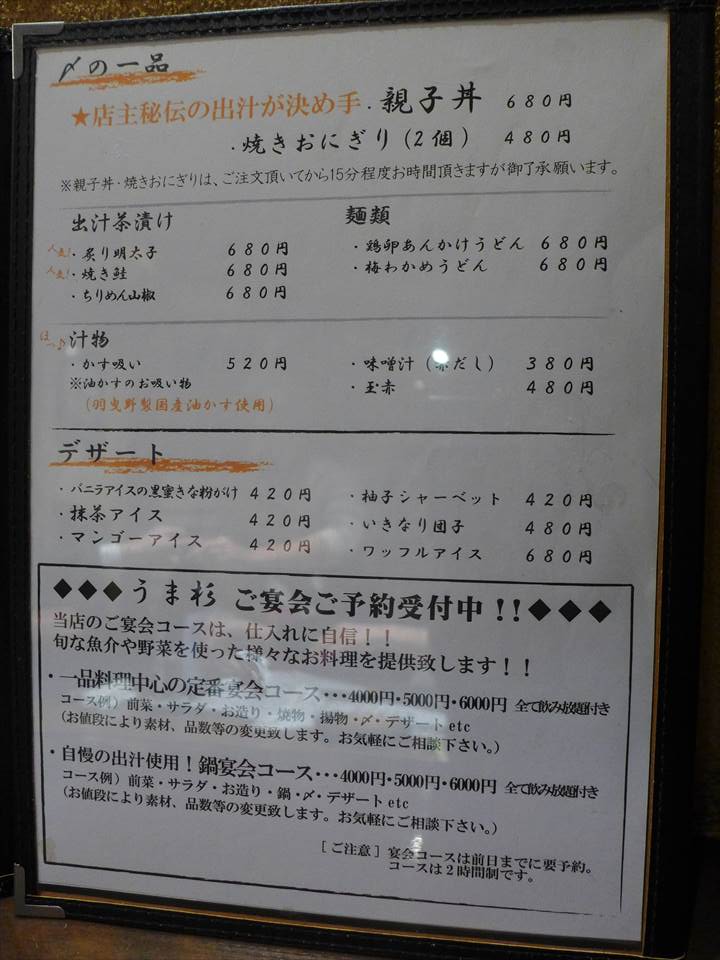 〆の一品
★店主秘伝の出汁が決め手・親子丼 680円
・焼きおにぎり(2個) 480円
※親子丼・焼きおにぎりは、ご注文頂いてから15分程度お時間頂きますが御了承願います。
出汁茶漬け
人気!・炙り明太子 680円
人気!・焼き鮭 680円
・ちりめん山椒 680円
麺類
・鶏卵あんかけうどん 680円
・梅わかめうどん 680円
ほっ♪汁物
・かす吸い 520円
※油かすのお吸い物
(羽曳野製国産油かす使用)
・味噌汁(赤だし) 380円
・玉赤 480円
デザート
・バニラアイスの黒蜜きな粉がけ 420円
・抹茶アイス 420円
・マンゴーアイス 420円
・柚子シャーベット 420円
・いきなり団子 480円
・ワッフルアイス 680円
◆◆◆うま杉 ご宴会ご予約受付中!!◆◆◆
当店のご宴会コースは、仕入れに自信!!
旬な魚介や野菜を使った様々なお料理を提供致します!!
・一品料理中心の定番宴会コース・・・4000円・5000円・6000円 全て飲み放題付き
コース例)前菜・サラダ・お造り・焼物・揚物・〆・デザート etc
(お値段により素材、品数等の変更致します。お気軽にご相談下さい。)
・自慢の出汁使用!鍋宴会コース・・・4000円・5000円・6000円 全て飲み放題付き
コース例)前菜・サラダ・お造り・鍋・〆・デザート etc
(お値段により素材、品数等の変更致します。お気軽にご相談下さい。)
[ご注意]宴会コースは前日までに要予約。
コースは2時間制です。